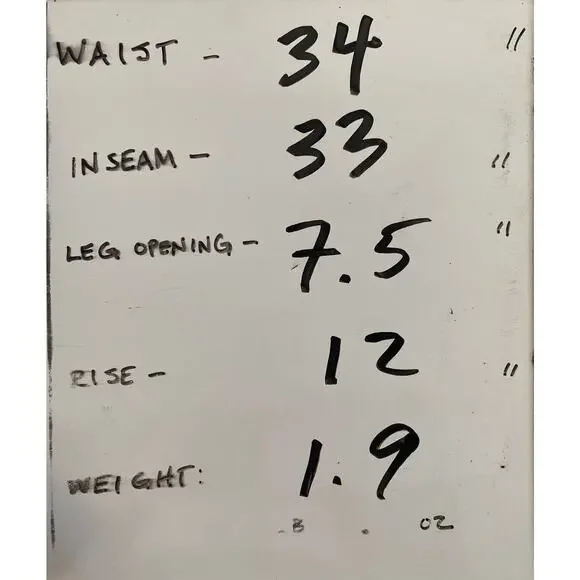 WAIST - 34 "
INSEAM - 33 "
LEG OPENING - 7.5 "
RISE - 12 "
WEIGHT: 1.9
. OZ